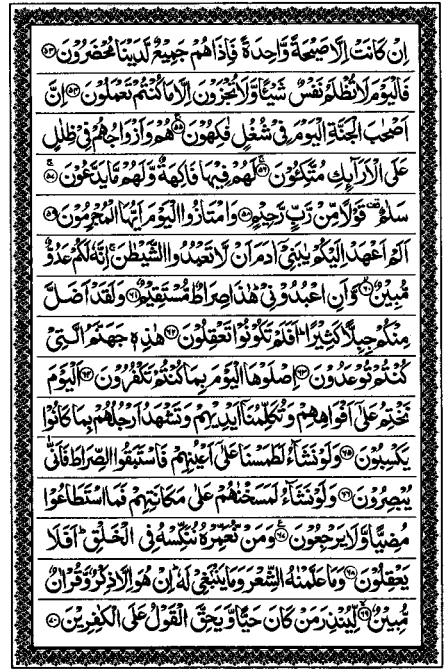 اِنْ كَانَتْ اِلَّا صَيْحَةً وَّاحِدَةً فَاِذَا هُمْ جَمِيْعٌ لَّدَيْنَا مُحْضَرُوْنَ ۝۵۳
فَالْيَوْمَ لَا تُظْلَمُ نَفْسٌ شَيْـًٔا وَّلَا تُجْزَوْنَ اِلَّا مَا كُنْتُمْ تَعْمَلُوْنَ ۝۵۴ اِنَّ
اَصْحٰبَ الْجَنَّةِ الْيَوْمَ فِيْ شُغُلٍ فٰكِهُوْنَ ۝۵۵ هُمْ وَاَزْوَاجُهُمْ فِيْ ظِلٰلٍ
عَلَى الْاَرَآىِٕكِ مُتَّكِـُٔوْنَ ۝۵۶ لَهُمْ فِيْهَا فَاكِهَةٌ وَّلَهُمْ مَّا يَدَّعُوْنَ ۝۵۷
سَلٰمٌ ۫ قَوْلًا مِّنْ رَّبٍّ رَّحِيْمٍ ۝۵۸ وَامْتَازُوا الْيَوْمَ اَيُّهَا الْمُجْرِمُوْنَ ۝۵۹
اَلَمْ اَعْهَدْ اِلَيْكُمْ يٰبَنِيْٓ اٰدَمَ اَنْ لَّا تَعْبُدُوا الشَّيْطٰنَ ۚ اِنَّهٗ لَكُمْ عَدُوٌّ
مُّبِيْنٌ ۝۶۰ وَّاَنِ اعْبُدُوْنِيْ ؔ هٰذَا صِرَاطٌ مُّسْتَقِيْمٌ ۝۶۱ وَلَقَدْ اَضَلَّ
مِنْكُمْ جِبِلًّا كَثِيْرًا ؕ اَفَلَمْ تَكُوْنُوْا تَعْقِلُوْنَ ۝۶۲ هٰذِهٖ جَهَنَّمُ الَّتِيْ
كُنْتُمْ تُوْعَدُوْنَ ۝۶۳ اِصْلَوْهَا الْيَوْمَ بِمَا كُنْتُمْ تَكْفُرُوْنَ ۝۶۴ اَلْيَوْمَ
نَخْتِمُ عَلٰٓى اَفْوَاهِهِمْ وَتُكَلِّمُنَآ اَيْدِيْهِمْ وَتَشْهَدُ اَرْجُلُهُمْ بِمَا كَانُوْا
يَكْسِبُوْنَ ۝۶۵ وَلَوْ نَشَآءُ لَطَمَسْنَا عَلٰٓى اَعْيُنِهِمْ فَاسْتَبَقُوا الصِّرَاطَ فَاَنّٰى
يُبْصِرُوْنَ ۝۶۶ وَلَوْ نَشَآءُ لَمَسَخْنٰهُمْ عَلٰى مَكَانَتِهِمْ فَمَا اسْتَطَاعُوْا
مُضِيًّا وَّلَا يَرْجِعُوْنَ ۝۶۷ وَمَنْ نُّعَمِّرْهُ نُنَكِّسْهُ فِي الْخَلْقِ ؕ اَفَلَا
يَعْقِلُوْنَ ۝۶۸ وَمَا عَلَّمْنٰهُ الشِّعْرَ وَمَا يَنْۢبَغِيْ لَهٗ ؕ اِنْ هُوَ اِلَّا ذِكْرٌ وَّقُرْاٰنٌ
مُّبِيْنٌ ۝۶۹ لِّيُنْذِرَ مَنْ كَانَ حَيًّا وَّيَحِقَّ الْقَوْلُ عَلَى الْكٰفِرِيْنَ ۝۷۰